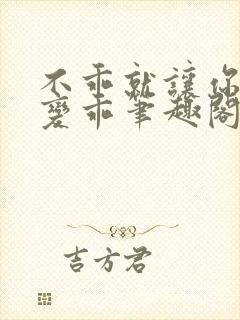 不乖就讓你
變乖筆趣閣
吉方君